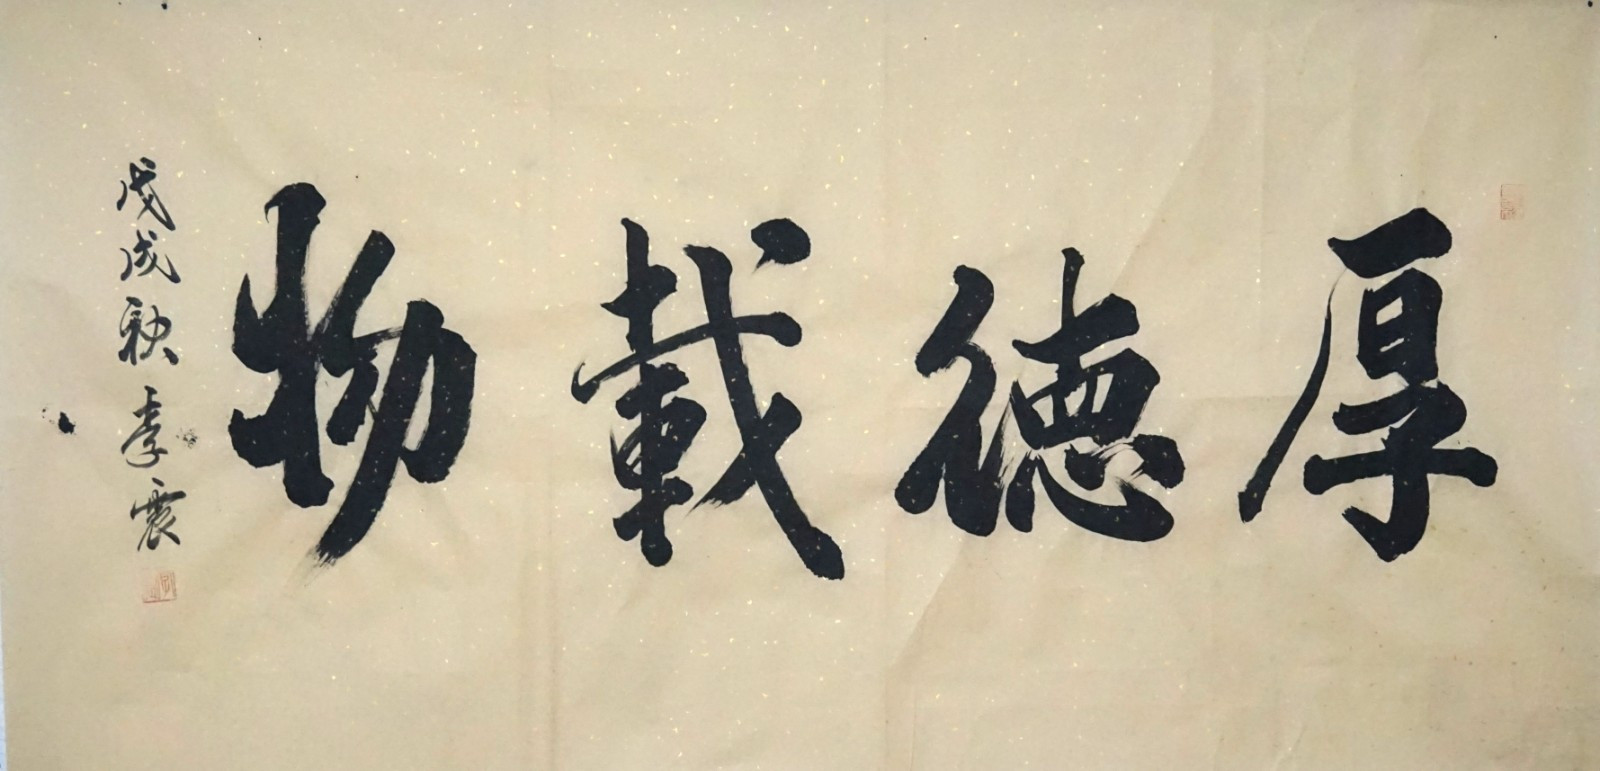 厚德載物
戊戌秋李震